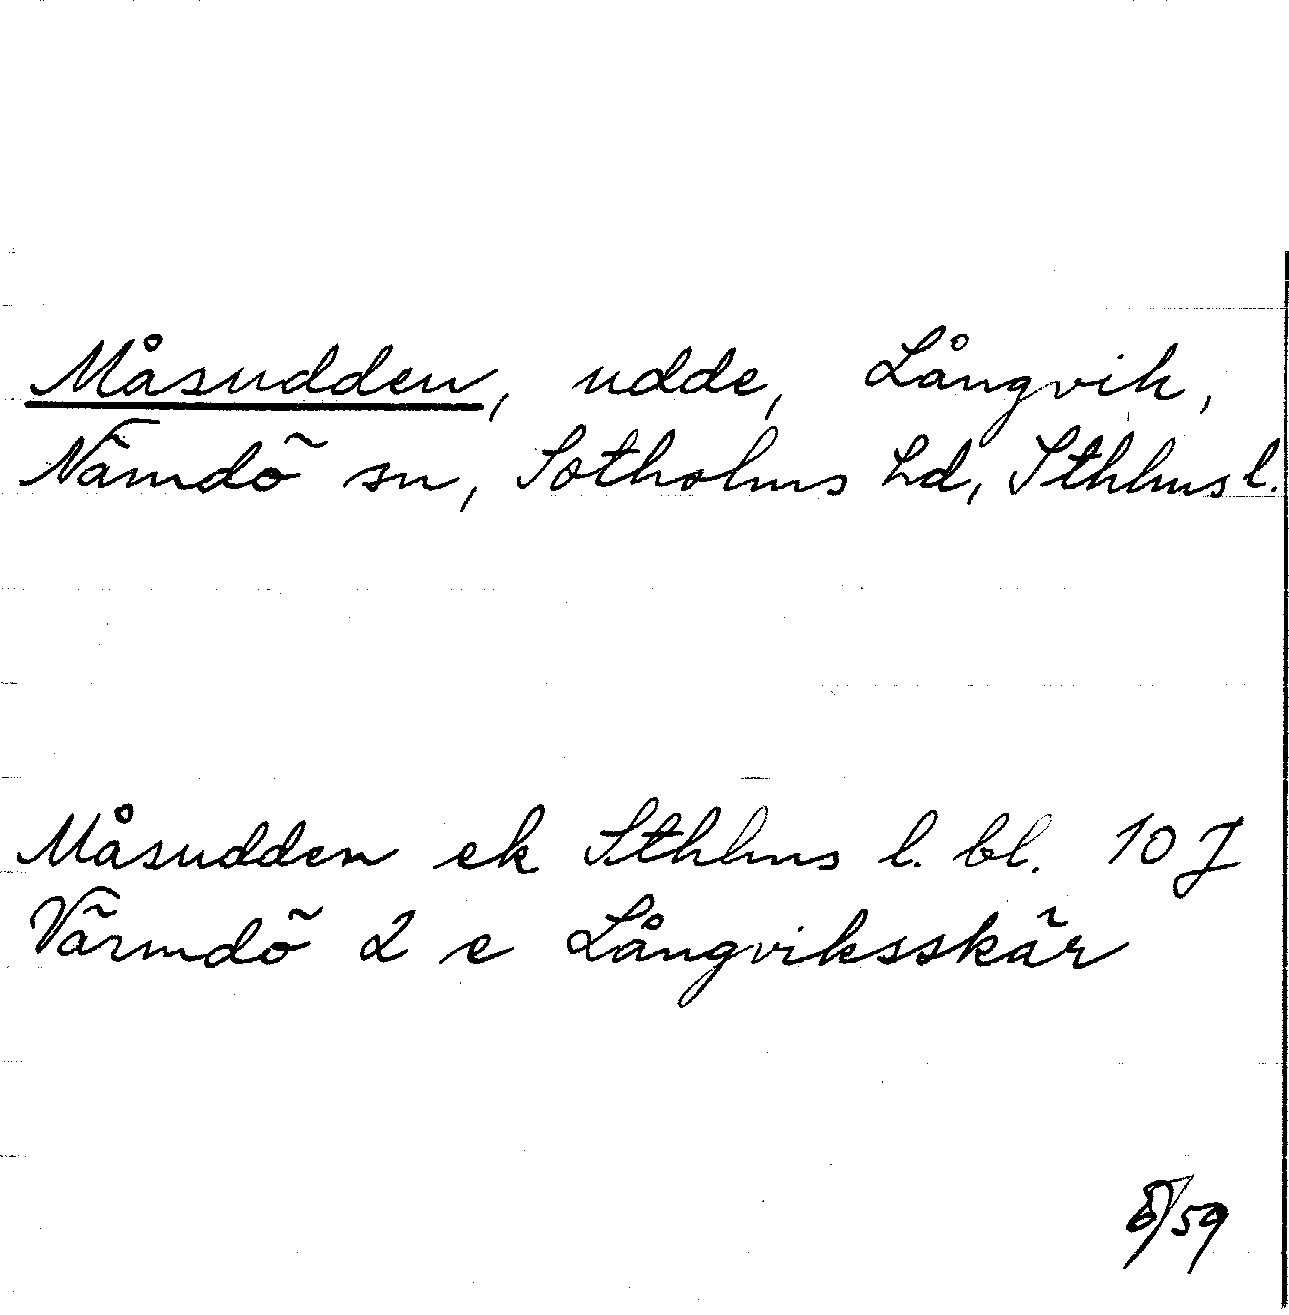 Måsudden, udde, Långvik,
Nämdö sn, Sotholms hd, Sthlms l.
Måsudden ek Sthlms l. bl. 10 J
Värmdö 2 e Långviksskär